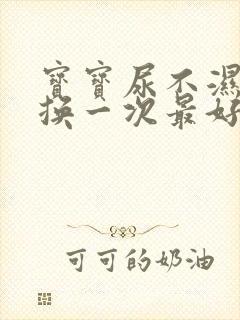 寶寶尿不濕
換一次最好
可可的奶油